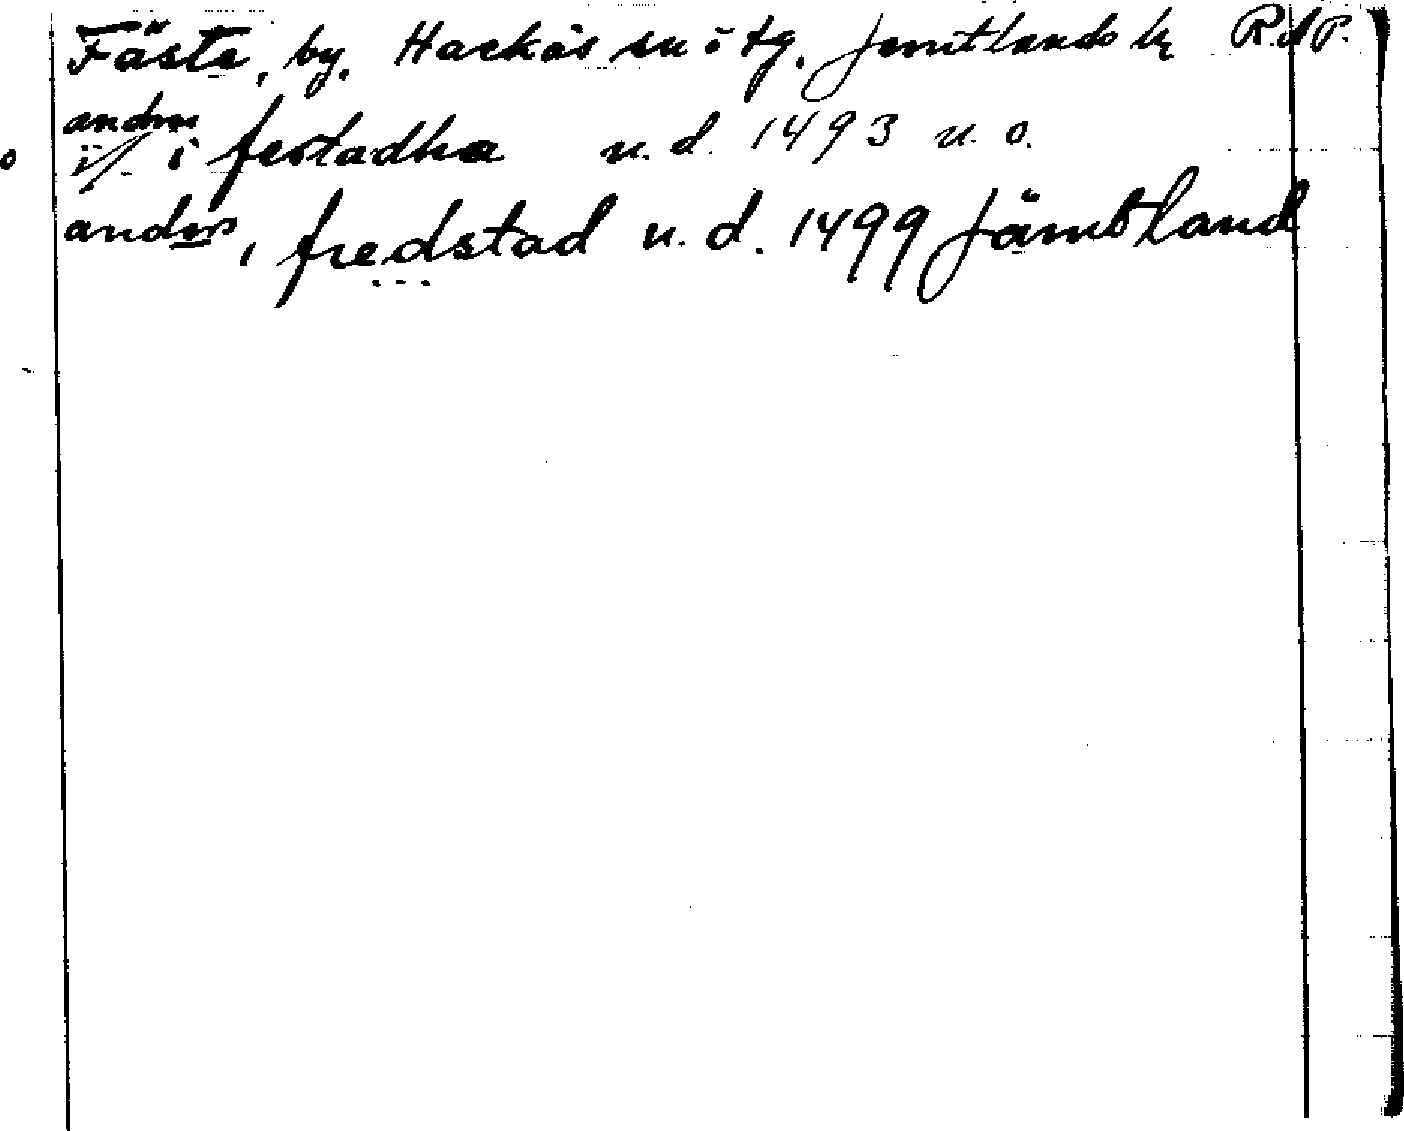 Fäste, by. Hackås sn ö tg. Jemtlands lg R.A.P.
anders i festadha u. d. 1493 u. o.
anders i fredstad u. d. 1499 Jämbtland